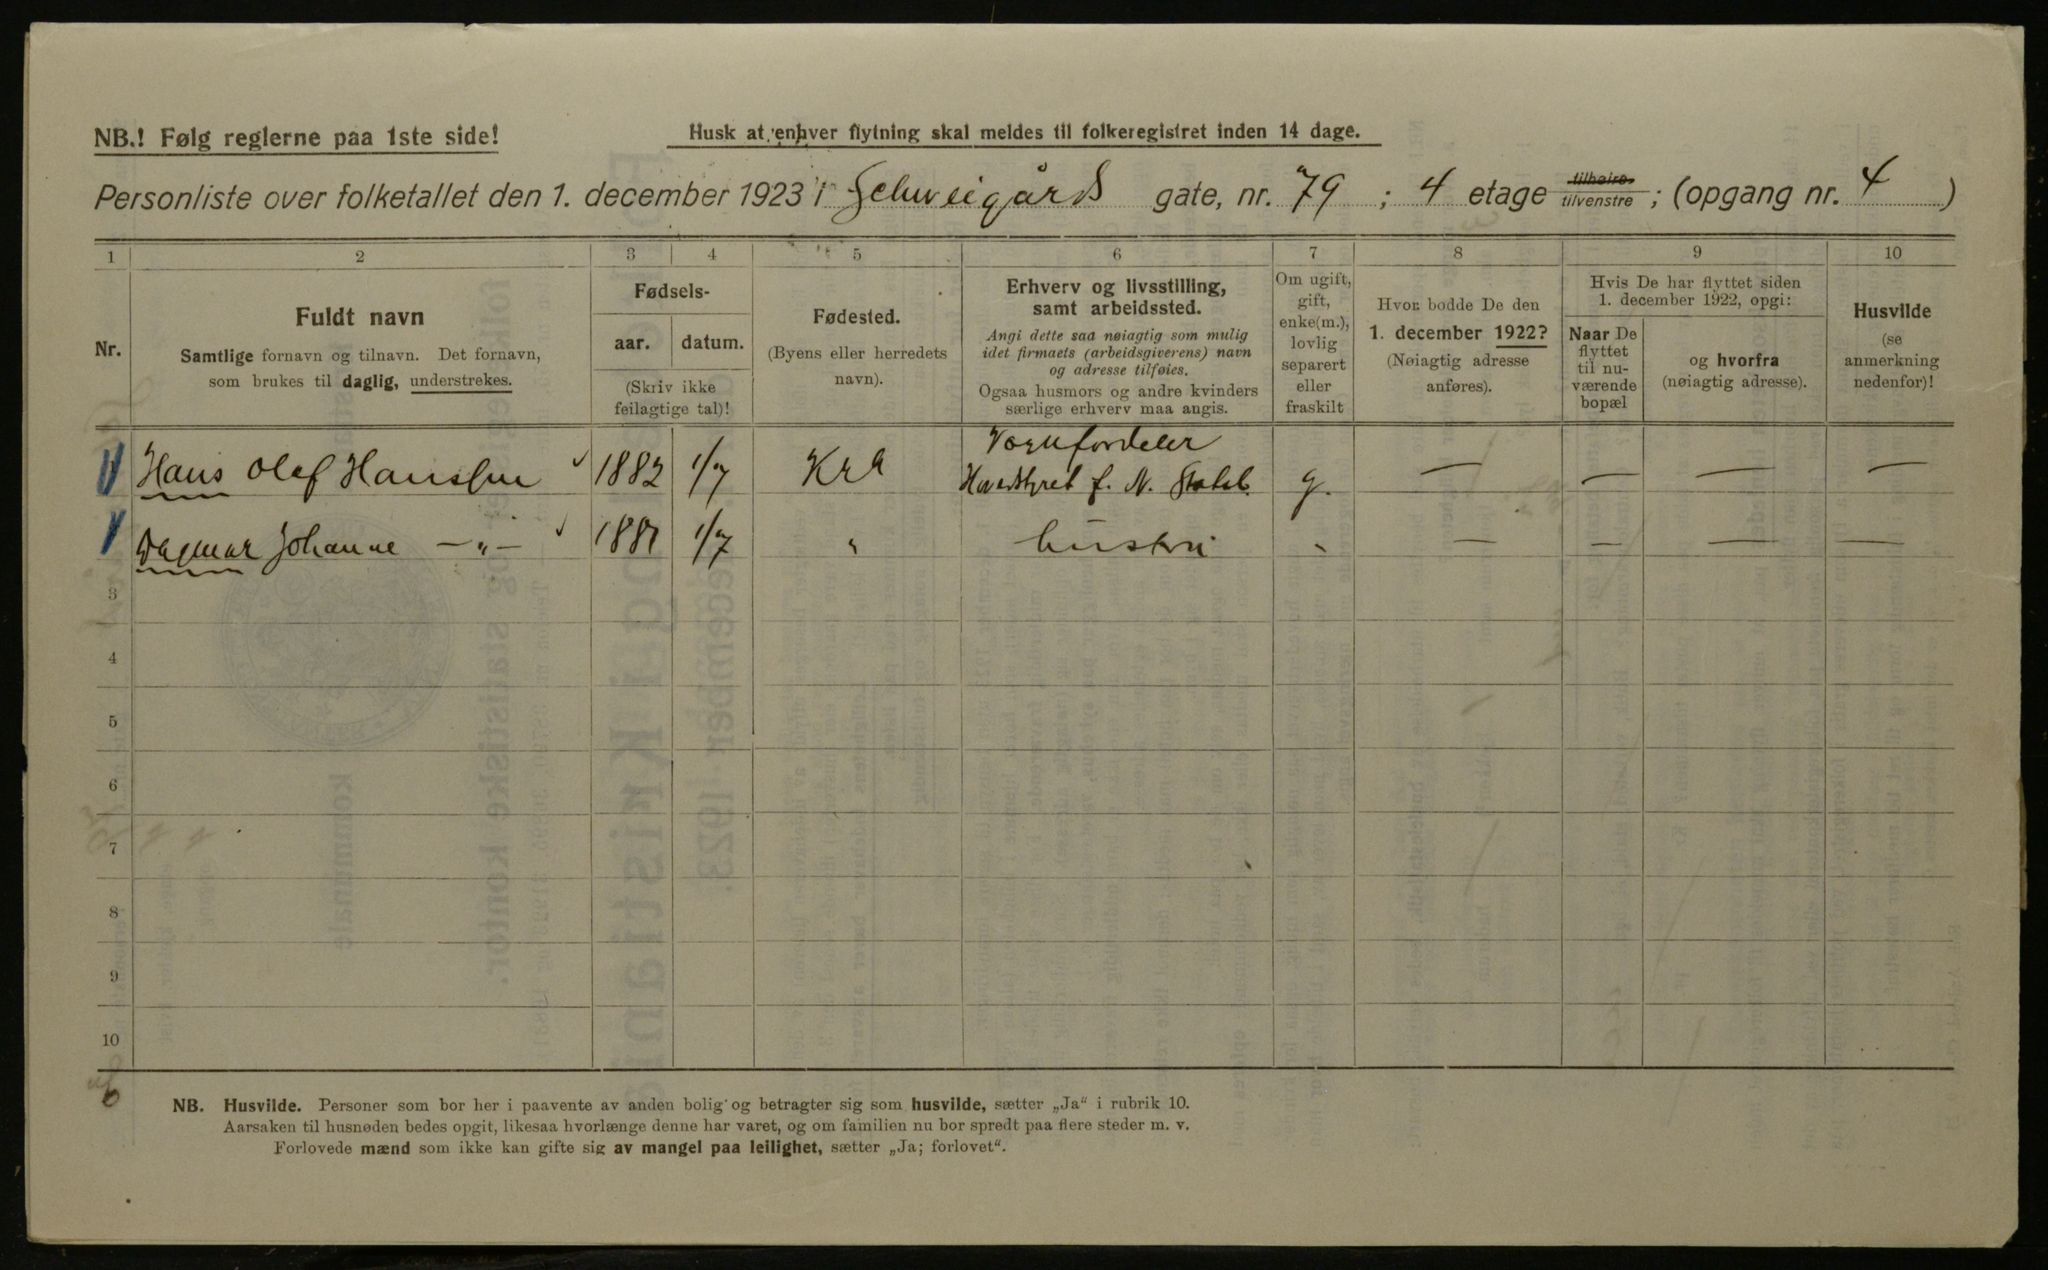 NB.! Følg reglerne paa 1ste side!
Husk at enhver flytning skal meldes til folkeregistret inden 14 dage.
Personliste over folketallet den 1. december 1923 i Schweigårds gate, nr. 79 ; 4 etage tilhøire tilvenstre ; (opgang nr. 4 )
1 2 3 4 5 6 7 8 9 10
Nr.
Fuldt navn
Samtlige fornavn og tilnavn. Det fornavn,
som brukes til daglig, understrekes.
Fødsels-
aar. datum.
(Skriv ikke
feilagtige tal)!
Fødested.
(Byens eller herredets
navn).
Erhverv og livsstilling,
samt arbeidssted.
Angi dette saa nøiagtig som mulig
idet firmaets (arbeidsgiverens) navn
og adresse tilføies.
Ogsaa husmors og andre kvinders
særlige erhverv maa angis.
Om ugift,
gift,
enke(m.),
lovlig
separert
eller
fraskilt
Hvor bodde De den
1. december 1922?
(Nøiagtig adresse
anføres).
Hvis De har flyttet siden
1. december 1922, opgi:
Naar De
flyttet
til nu-
værende
bopæl
og hvorfra
(nøiagtig adresse).
Husvilde
(se
anmerkning
nedenfor)!
Vognfordeler
Hans Olaf Hanssen 1882 1/7 Kra Hovedstyret f. N. Statsb. g. — — — —
Dagmar Johanne —„— 1881 1/7 „ hustru „ — — — —
3
4
5
6
7
8
9
10
NB. Husvilde. Personer som bor her i paavente av anden bolig og betragter sig som husvilde, sætter „Ja“ i rubrik 10.
Aarsaken til husnøden bedes opgit, likesaa hvorlænge denne har varet, og om familien nu bor spredt paa flere steder m. v.
Forlovede mænd som ikke kan gifte sig av mangel paa leilighet, sætter „Ja; forlovet“.